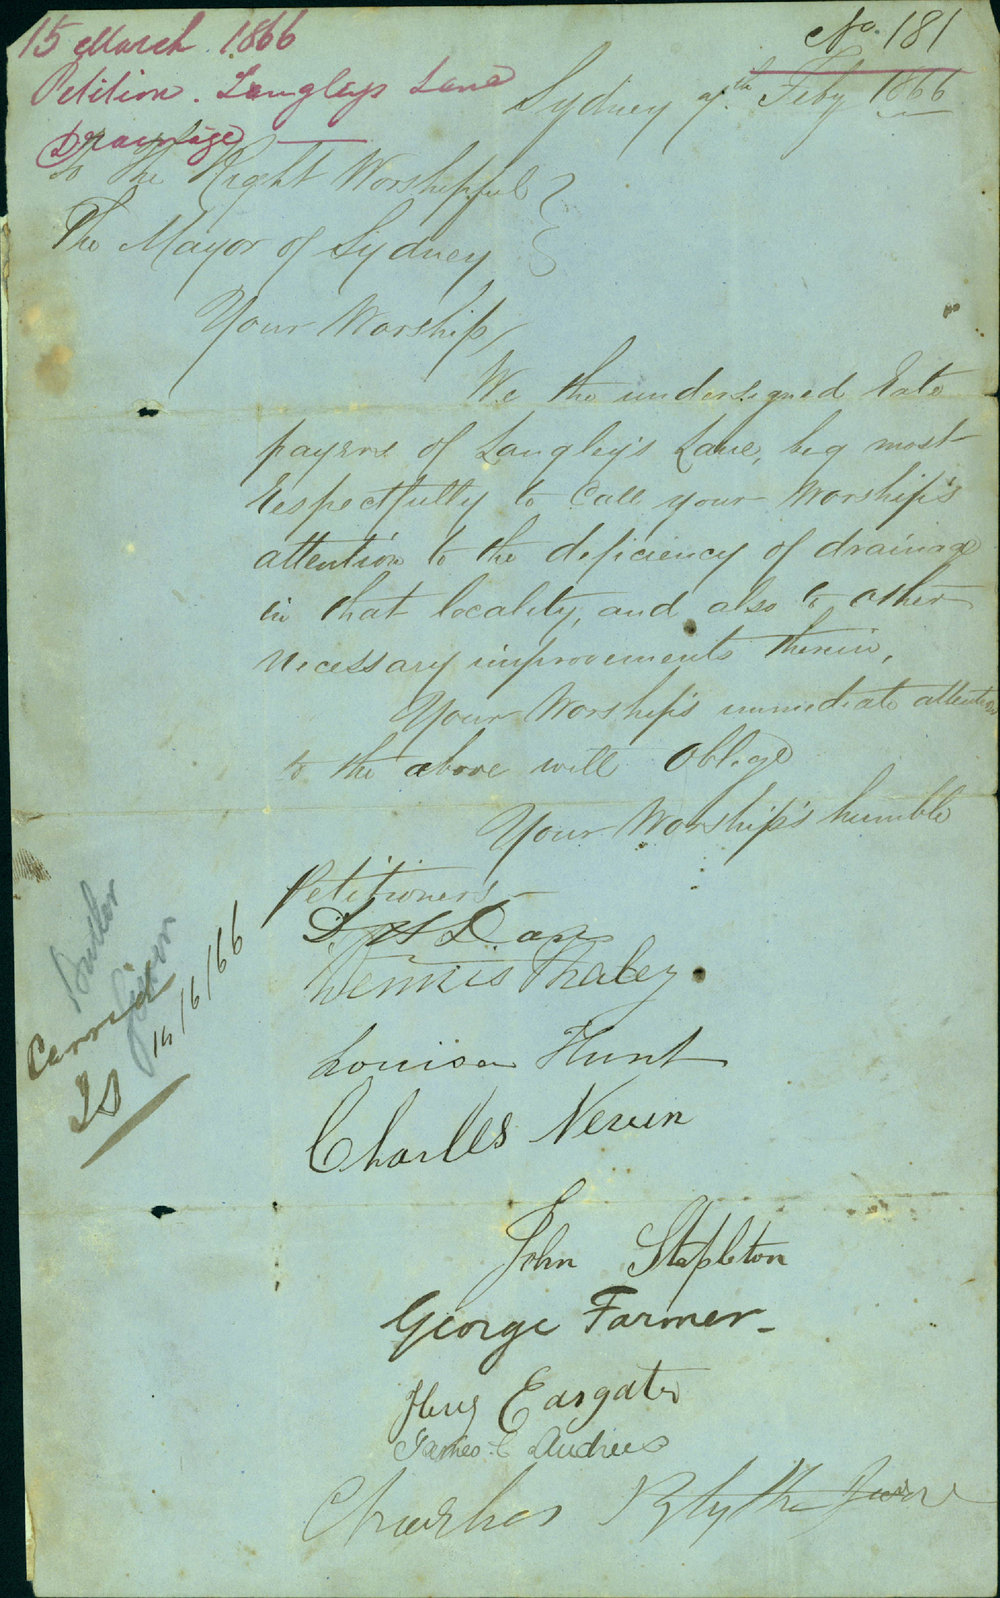 15 March 1866
Petition. Langleys Lane
Drainage
No. 181
Sydney 7th Feby 1866
To The Right Worshipful
The Mayor of Sydney
Your Worship,
We the undersigned Rate
payers of Langley's Lane, beg most
respectfully to call your Worship's
attention to the deficiency of drainage
in that locality, and also to other
necessary improvements therein,
Your Worship's immediate attention
to the above will oblige
Your Worship's humble
Petitioners
Dennis
Louisa Hunt
Charles
John Stapleton
George Farmer
Eargate
James C Andrews
Charles Blythe
Carried
/6/66